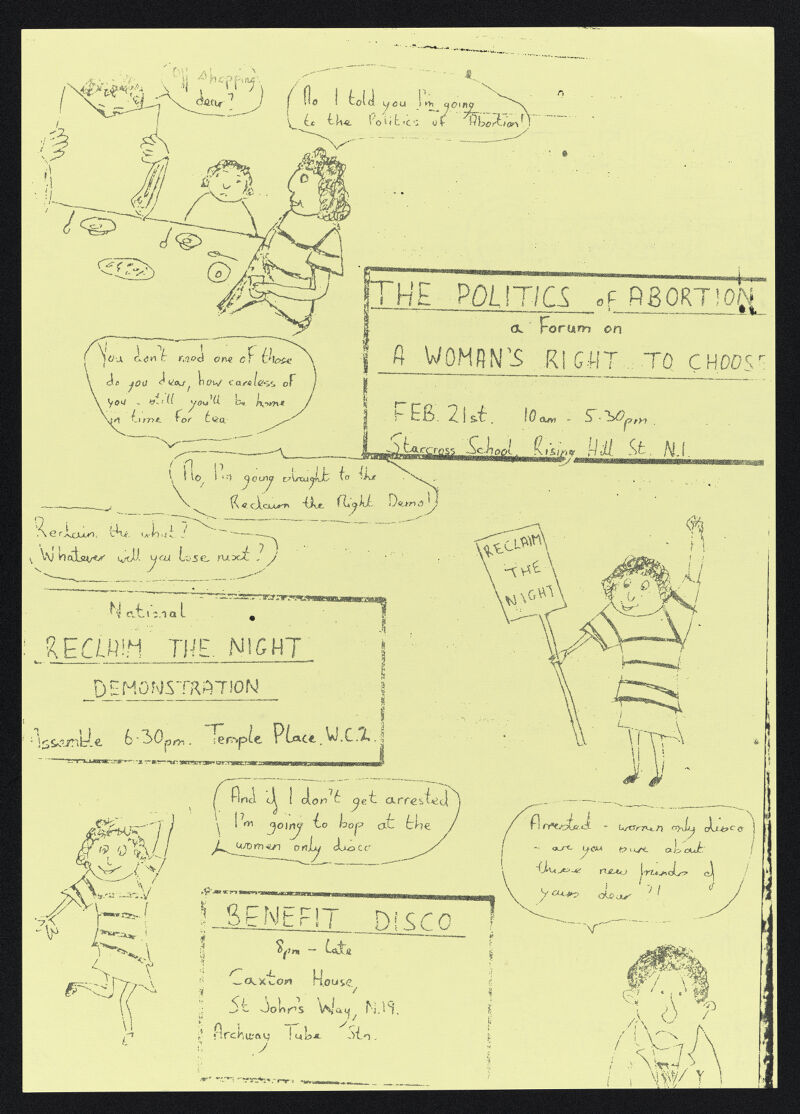 Off shopping
dear?
No I told you I'm going
to the Politics of Abortion!
THE POLITICS of ABORTION
a Forum on
A WOMAN'S RIGHT TO CHOOSE
FEB. 21st. 10am - 5.30pm.
Starcross School, Rising Hill St. N.1.
You don't need one of those
do you dear, how careless of
you - still you'll be home
in time for tea
No, I'm going straight to the
Reclaim the Night Demo!
Reclaim the what?
Whatever will you lose next?
RECLAIM
THE
NIGHT
National
RECLAIM THE NIGHT
DEMONSTRATION
Assemble 6.30pm. Temple Place, W.C.2.
And if I don't get arrested
I'm going to bop at the
women only disco
Arrested - women only disco
- are you sure about
these new friends of
yours dear?!
BENEFIT DISCO
8pm - Late
Caxton House,
St John's Way, N.19.
Archway Tube Stn.